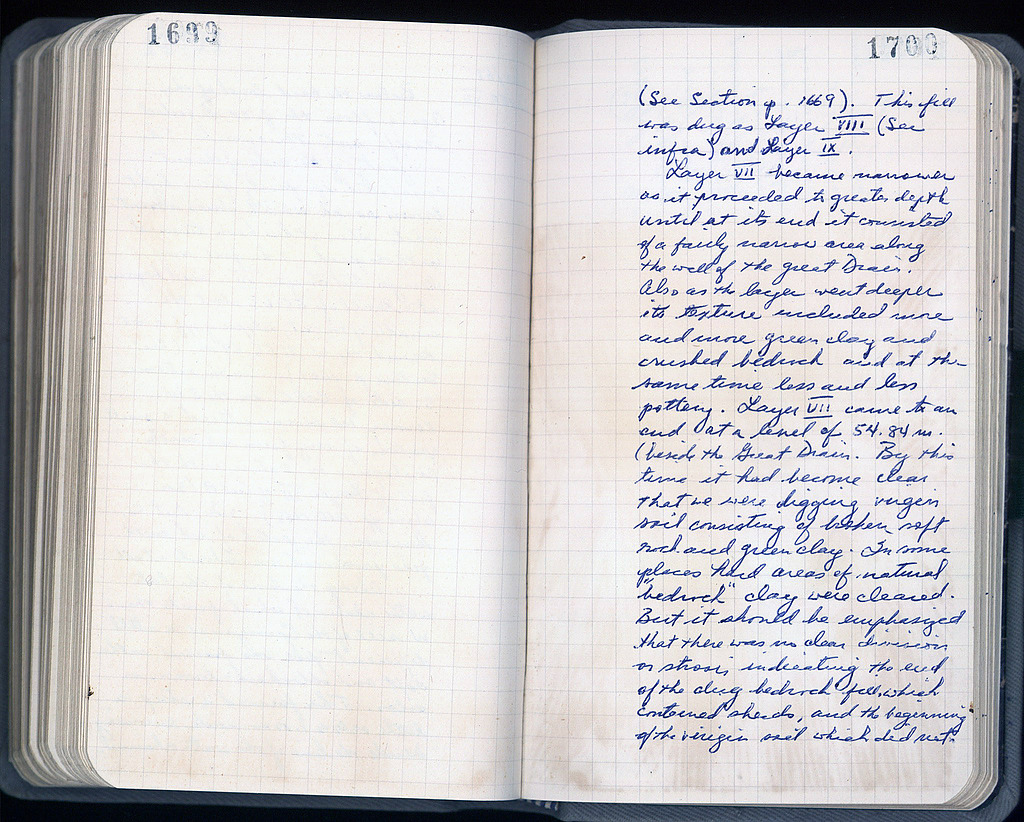 1699
1700
(See Section p. 1669). This fill
was dug as Layer VIII (See
infra) and Layer IX.
Layer VII became narrower
as it proceeded to greater depth
until at its end it consisted
of a fairly narrow area along
the wall of the great Drain.
Also as the layer went deeper
its texture included more
and more green clay and
crushed bedrock and at the
same time less and less
pottery. Layer VII came to an
end at a level of 54.84 m.
(beside the Great Drain. By this
time it had become clear
that we were digging virgin
soil consisting of broken soft
rock and green clay. In some
places hard areas of natural
"bedrock" clay were cleared.
But it should be emphasized
that there was no clear division
or strosis indicating the end
of the dug bedrock fill, which
contained sherds, and the beginning
of the virigin soil which did not.